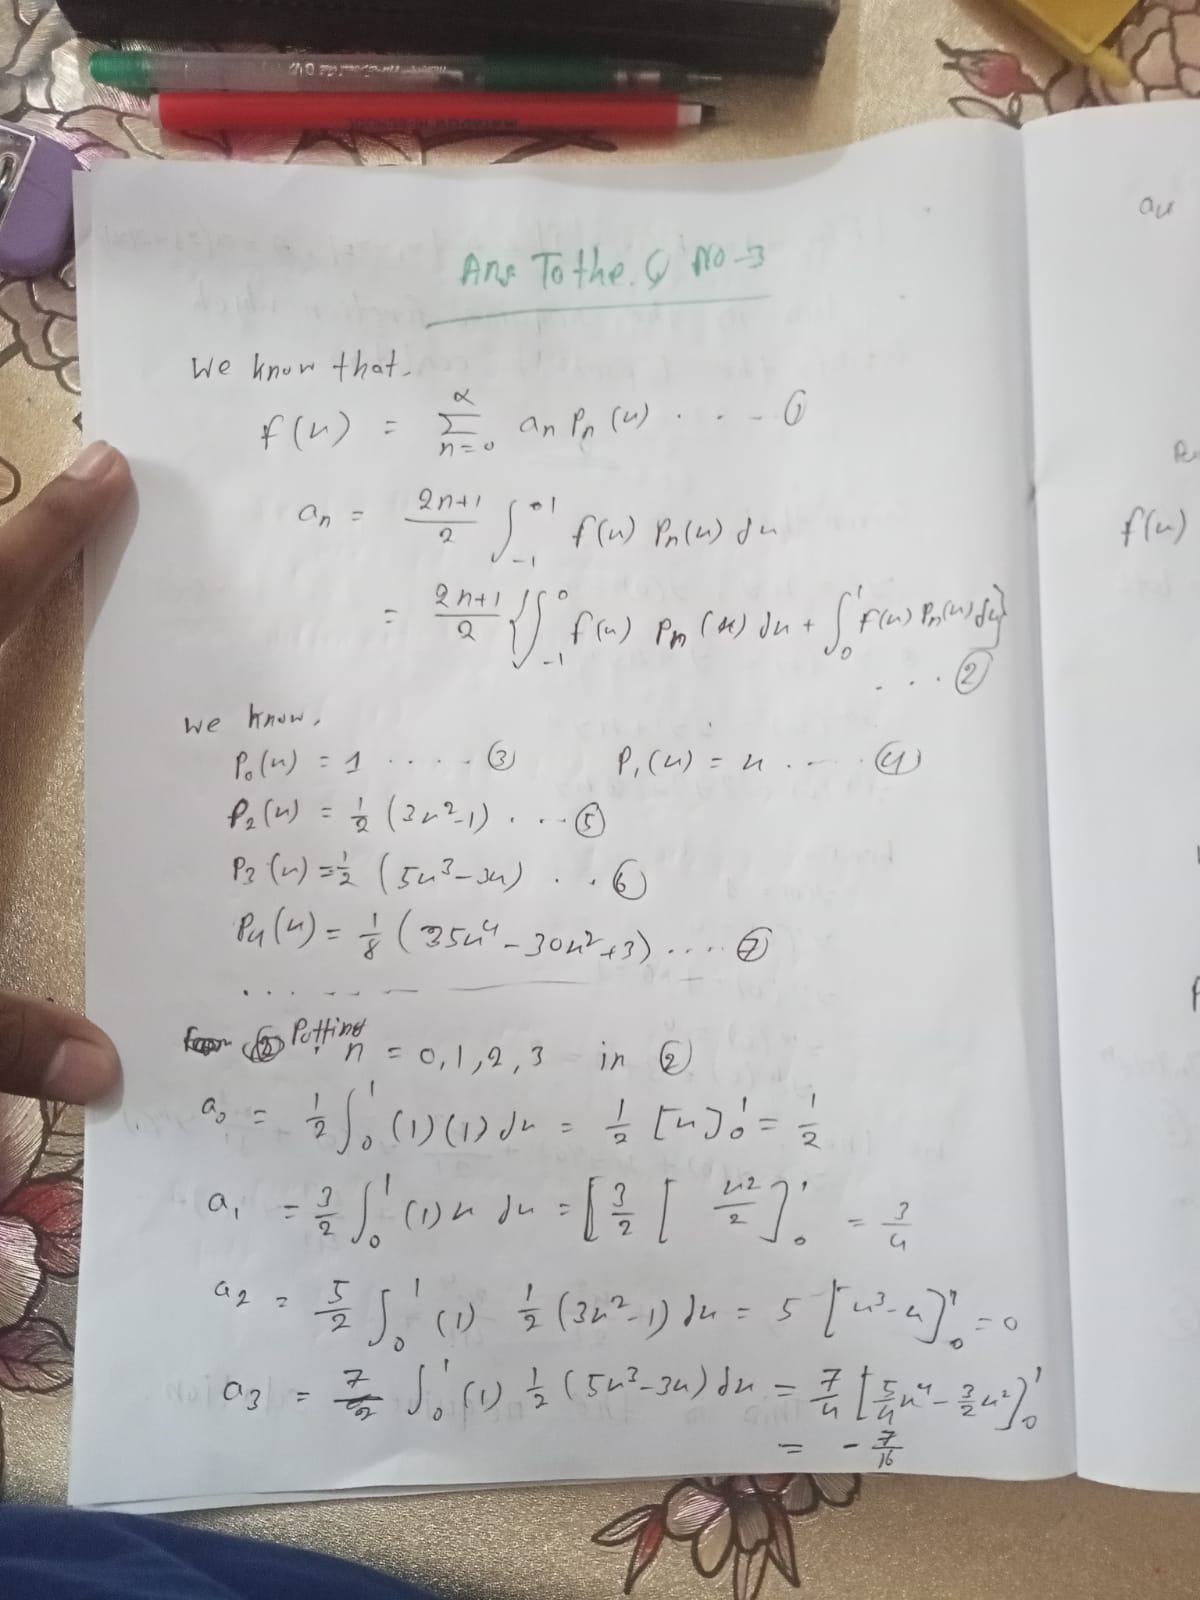 Ans To the. Q No-3
We know that.
f(x) = ∑_{n=0}^{α} a_n P_n(x) . . . - ①
a_n = \frac{2n+1}{2} ∫_{-1}^{1} f(x) P_n(x) dx
= \frac{2n+1}{2} {∫_{-1}^{0} f(x) P_n(x) dx + ∫_{0}^{1} f(x) P_n(x) dx}
. . . ②
we know,
P_0(x) = 1 . . . . - ③ P_1(x) = x . - - . ④
P_2(x) = \frac{1}{2} (3x^2-1) . . - - ⑤
P_3(x) = \frac{1}{2} (5x^3-3x) . . ⑥
P_4(x) = \frac{1}{8} (35x^4-30x^2+3) . . . . ⑦
Putting
n = 0,1,2,3 in ②
a_0 = \frac{1}{2} ∫_0^1 (1)(1) dx = \frac{1}{2} [x]_0^1 = \frac{1}{2}
a_1 = \frac{3}{2} ∫_0^1 (1) x dx = [\frac{3}{2} [ \frac{x^2}{2}]_0^1 = \frac{3}{4}
a_2 = \frac{5}{2} ∫_0^1 (1) \frac{1}{2} (3x^2-1) dx = 5 [x^3-x]_0^1 = 0
a_3 = \frac{7}{2} ∫_0^1 (1) \frac{1}{2} (5x^3-3x) dx = \frac{7}{4} [\frac{5}{4}x^4 - \frac{3}{2}x^2]_0^1
= - \frac{7}{16}
a_4
f(x)